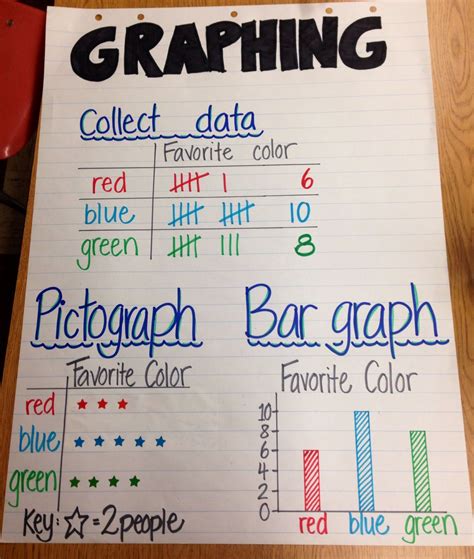 GRAPHING
Collect data
Favorite color
red 6
blue 10
green 8
Pictograph
Favorite Color
red
blue
green
Key: ☆=2people
Bar graph
Favorite Color
10
8
6
4
2
0
red blue green